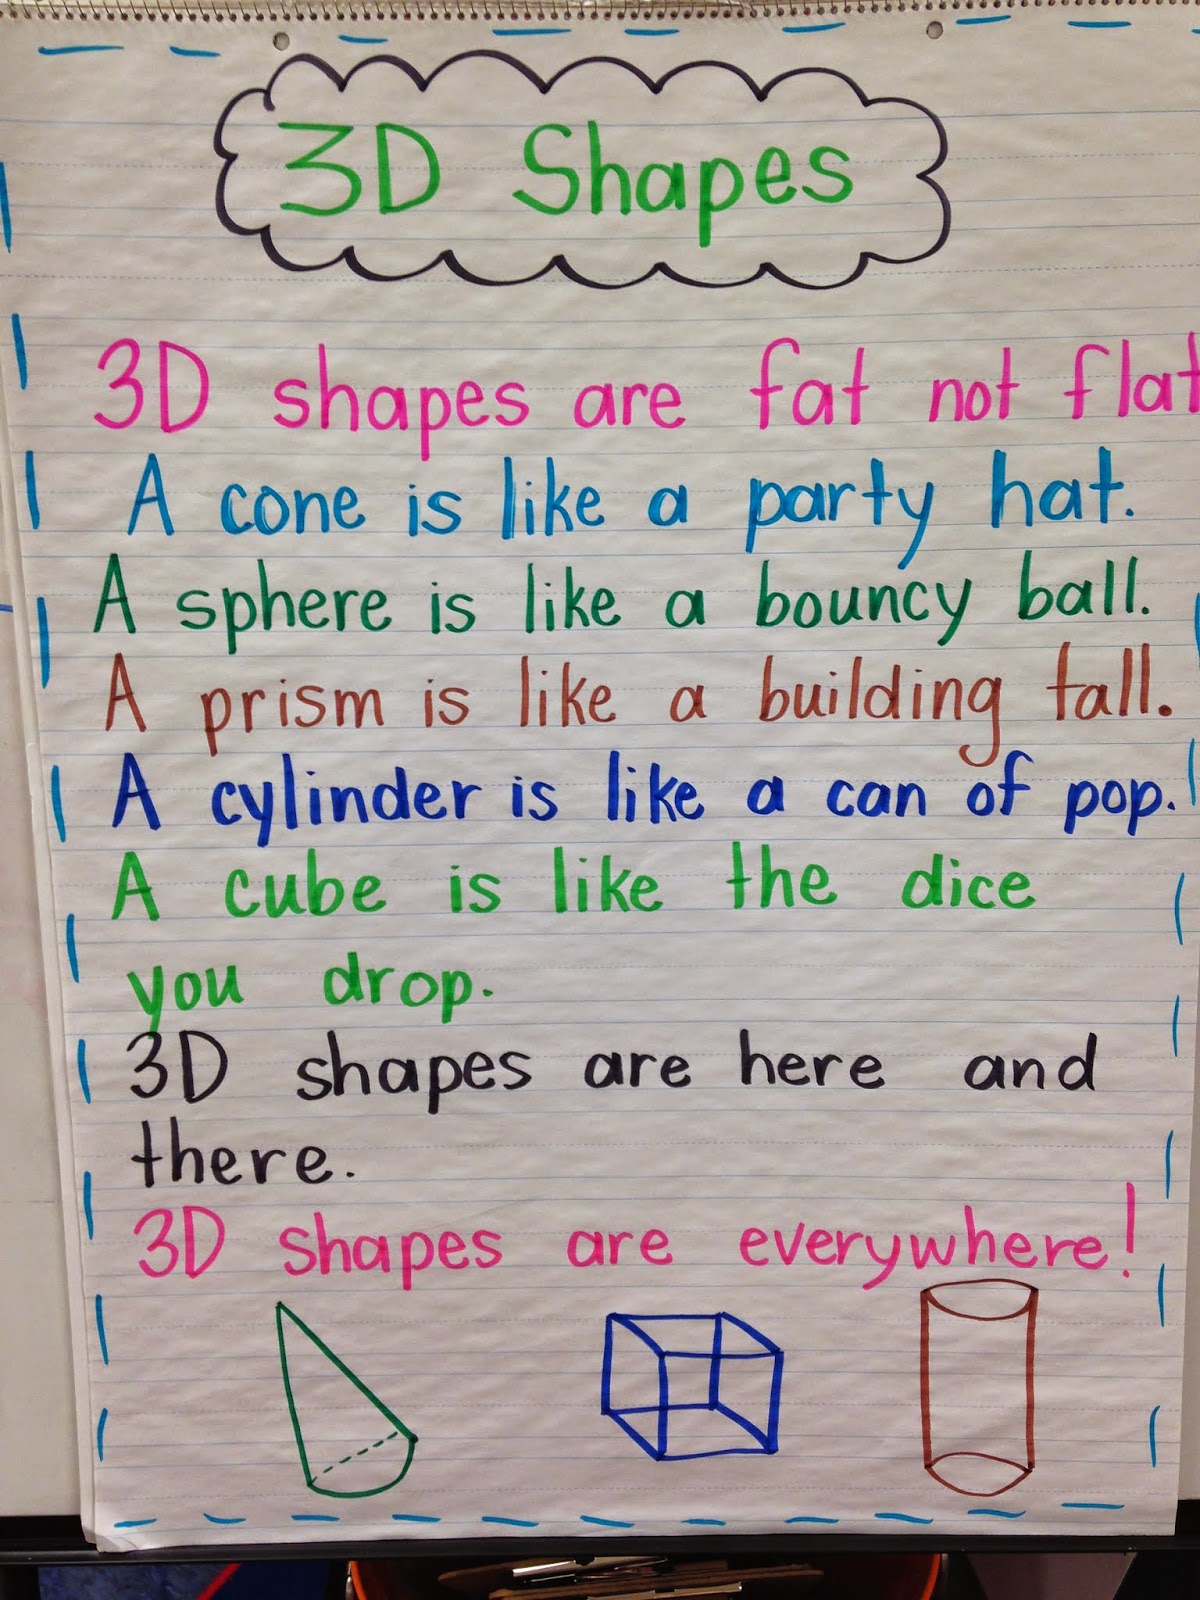 3D Shapes
3D shapes are fat not flat
A cone is like a party hat.
A sphere is like a bouncy ball.
A prism is like a building tall.
A cylinder is like a can of pop.
A cube is like the dice
you drop.
3D shapes are here and
there.
3D shapes are everywhere!